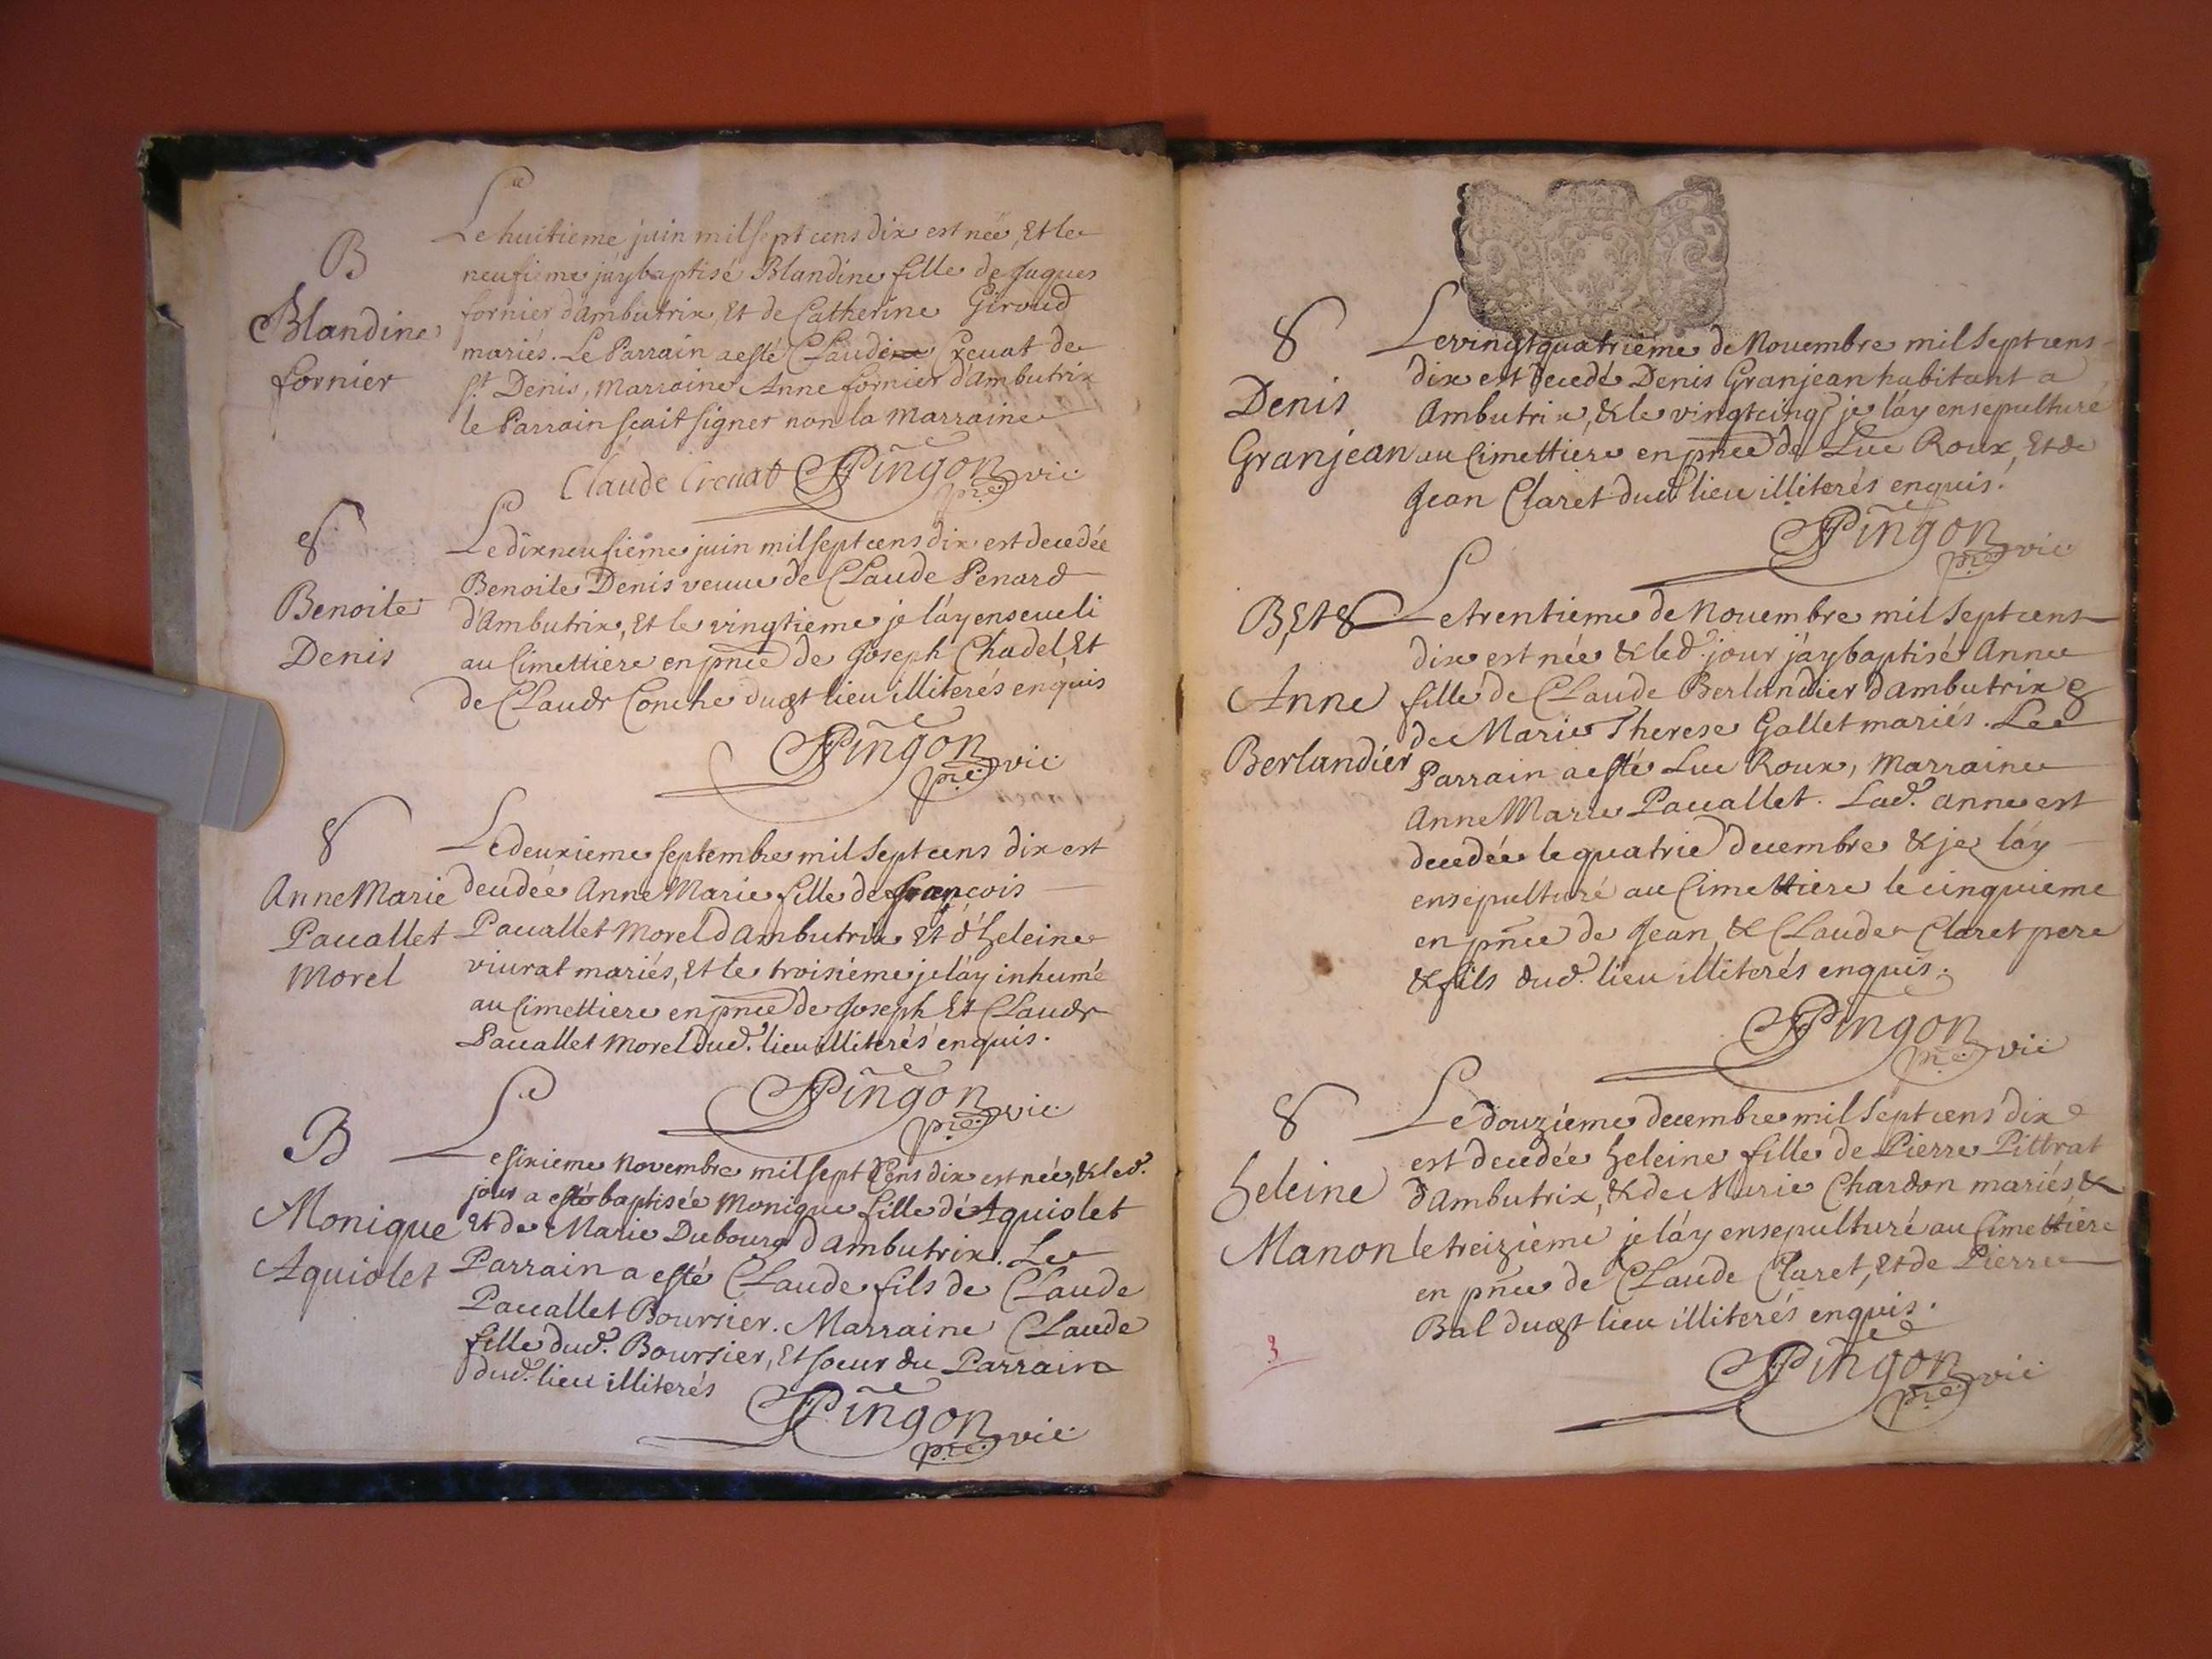 B
Blandine
fornier
Le huitieme juin mil sept cens dix est née, Et le
neufieme j'ay baptisé Blandine fille de Jaques
fornier d'ambutrix, Et de Catherine Giroud
mariés. Le Parrain a esté Claude Crevat de
St. Denis, Marraine Anne fornier d'Ambutrix
le Parrain sçait signer non la Marraine
Claude Crevat Pingon pre. vic
8
Benoite
Denis
Le dixneufieme juin mil sept cens dix est decedée
Benoite Denis veuue de Claude Penard
d'Ambutrix, Et le vingtieme je l'ay enseueli
au Cimettiere en pnce de Joseph Chadel, Et
de Claude Conche dudt lieu illiterés enquis
Pingon pre. vic
8
Anne Marie
Pauallet
Morel
Le deuxieme septembre mil sept cens dix est
decedée Anne Marie fille de françois
Pauallet Morel d'Ambutrix Et d'heleine
viurat mariés, Et le troisieme je l'ay inhumé
au Cimettiere en pnce de Joseph Et Claude
Pauallet Morel dud. lieu illiterés enquis.
Pingon pre. vic
B
Monique
Aquiolet
Le sixieme Novembre mil sept Cens dix est née, & led.
jour a esté baptisée Monique fille de Aquiolet
Et de Marie Dubourg d'Ambutrix. Le
Parrain a esté Claude fils de Claude
Pauallet Boursier. Marraine Claude
fille dud. Boursier, Et soeur du Parrain
dud. lieu illiterés
Pingon pre. vic
8
Denis
Granjean
Le vingtquatrieme de Nouembre mil sept cens
dix est decedé Denis Granjean habitant a
Ambutrix, & le vingtcinq je l'ay ensepulturé
au Cimettiere en pnce de Luc Roux, Et de
Jean Claret dud lieu illiterés enquis.
Pingon pre. vic
B, Et 8
Anne
Berlandier
Le trentieme de Nouembre mil sept cens
dix est née & led. jour j'ay baptisé Anne
fille de Claude Berlandier d'ambutrix &
de Marie Therese Gallet mariés. Le
Parrain a esté Luc Roux, Marraine
Anne Marie Pauallet. Lad. anne est
decedée le quatrie decembre & je l'ay
ensepulturé au Cimettiere le cinquieme
en pnce de Jean & Claude Claret pere
& fils dud. lieu illiterés enquis.
Pingon pre. vic
8
heleine
Manon
Le douzieme decembre mil sept cens dix
est decedée heleine fille de Pierre Pittrat
d'Ambutrix, & de Marie Chardon mariés &
le treizieme je l'ay ensepulturé au Cimettiere
en pnce de Claude Claret, Et de Pierre
Bal dudt lieu illiterés enquis.
Pingon pre. vic
3